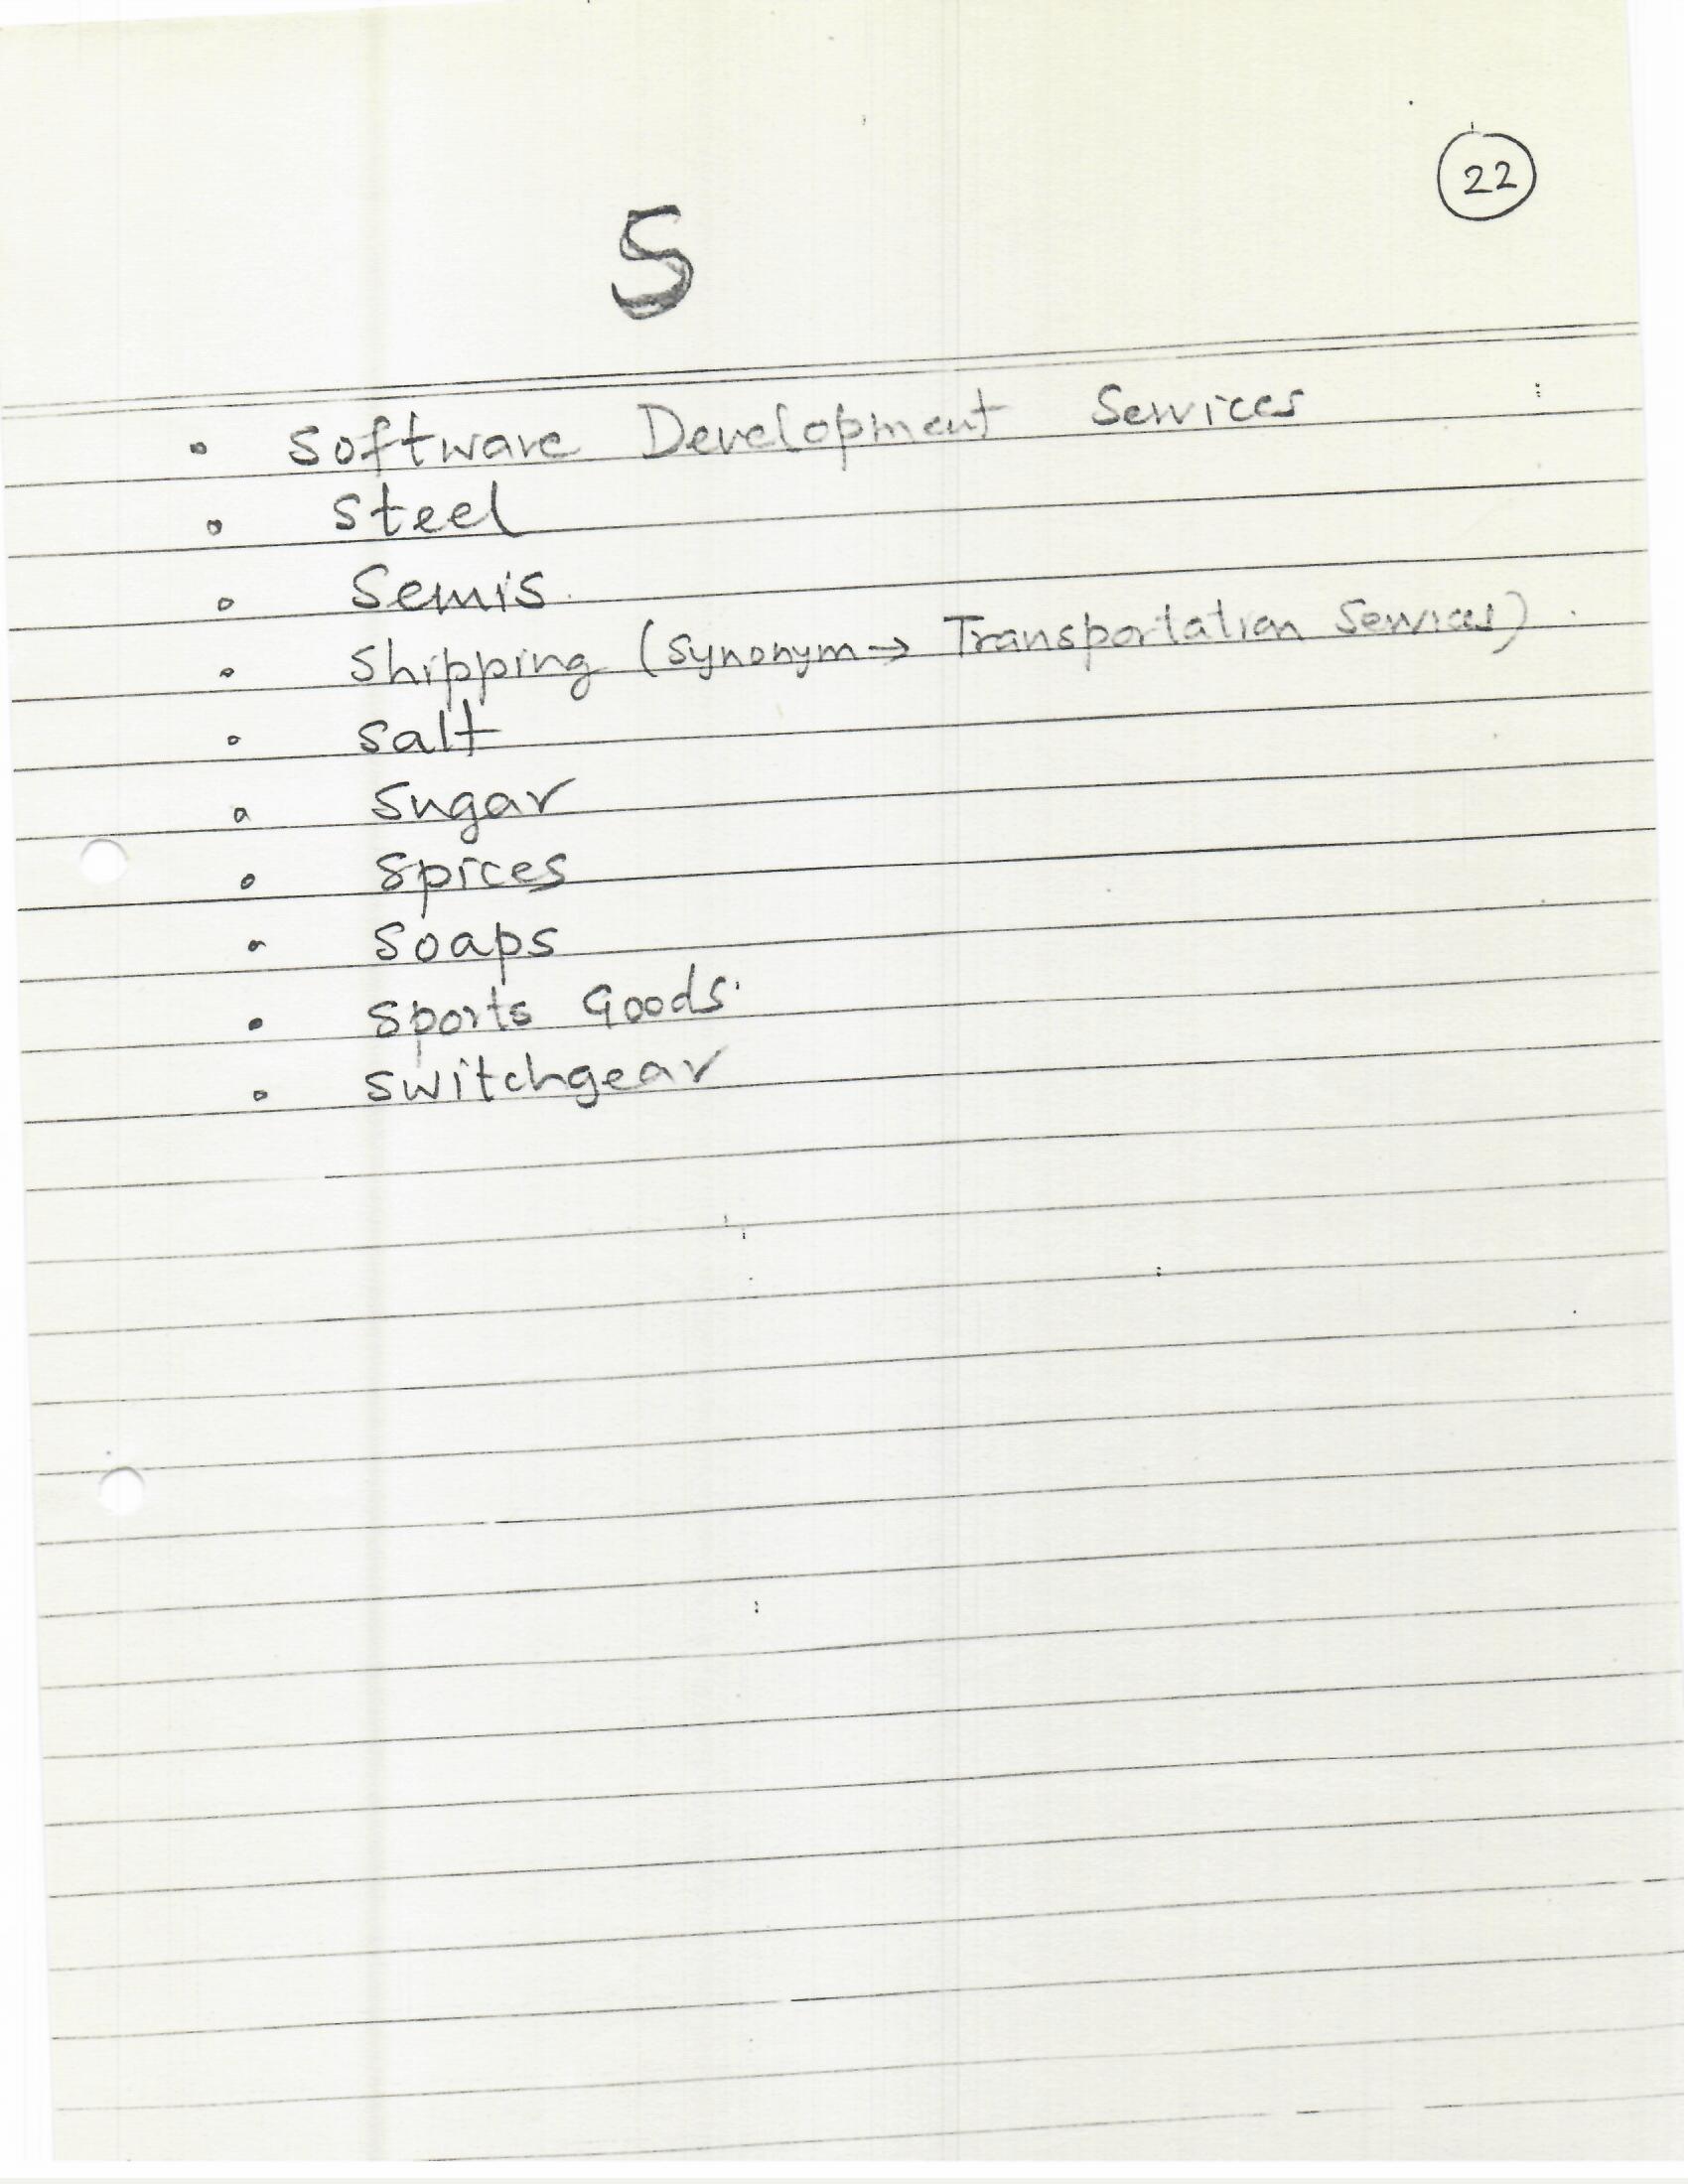 22
S
• Software Development Services
• Steel
• Semis.
• Shipping (Synonym → Transportation Services).
• Salt
• Sugar
• Spices
• Soaps
• Sports Goods.
• Switchgear